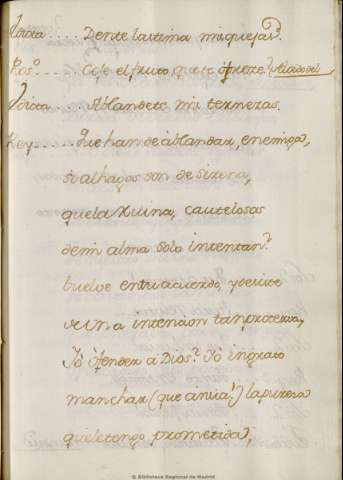 Idiota.... Dente lastima mis quejas?
Ros.º.... Coje el fruto que te ofreze.
Idiota.... Ablandete mi terneza.
Rey.... Que han de ablandar, enemiga,
si alhagos son de sirena,
que la ruina, cautelosas
de mi alma solo intentan?
buelve en tu acuerdo, y desiste
de una intencion tan proterva,
Yò ofender à Dios? Yò ingrato
manchar (que ansia!) la pureza
que le tengo prometida,
© Biblioteca Regional de Madrid